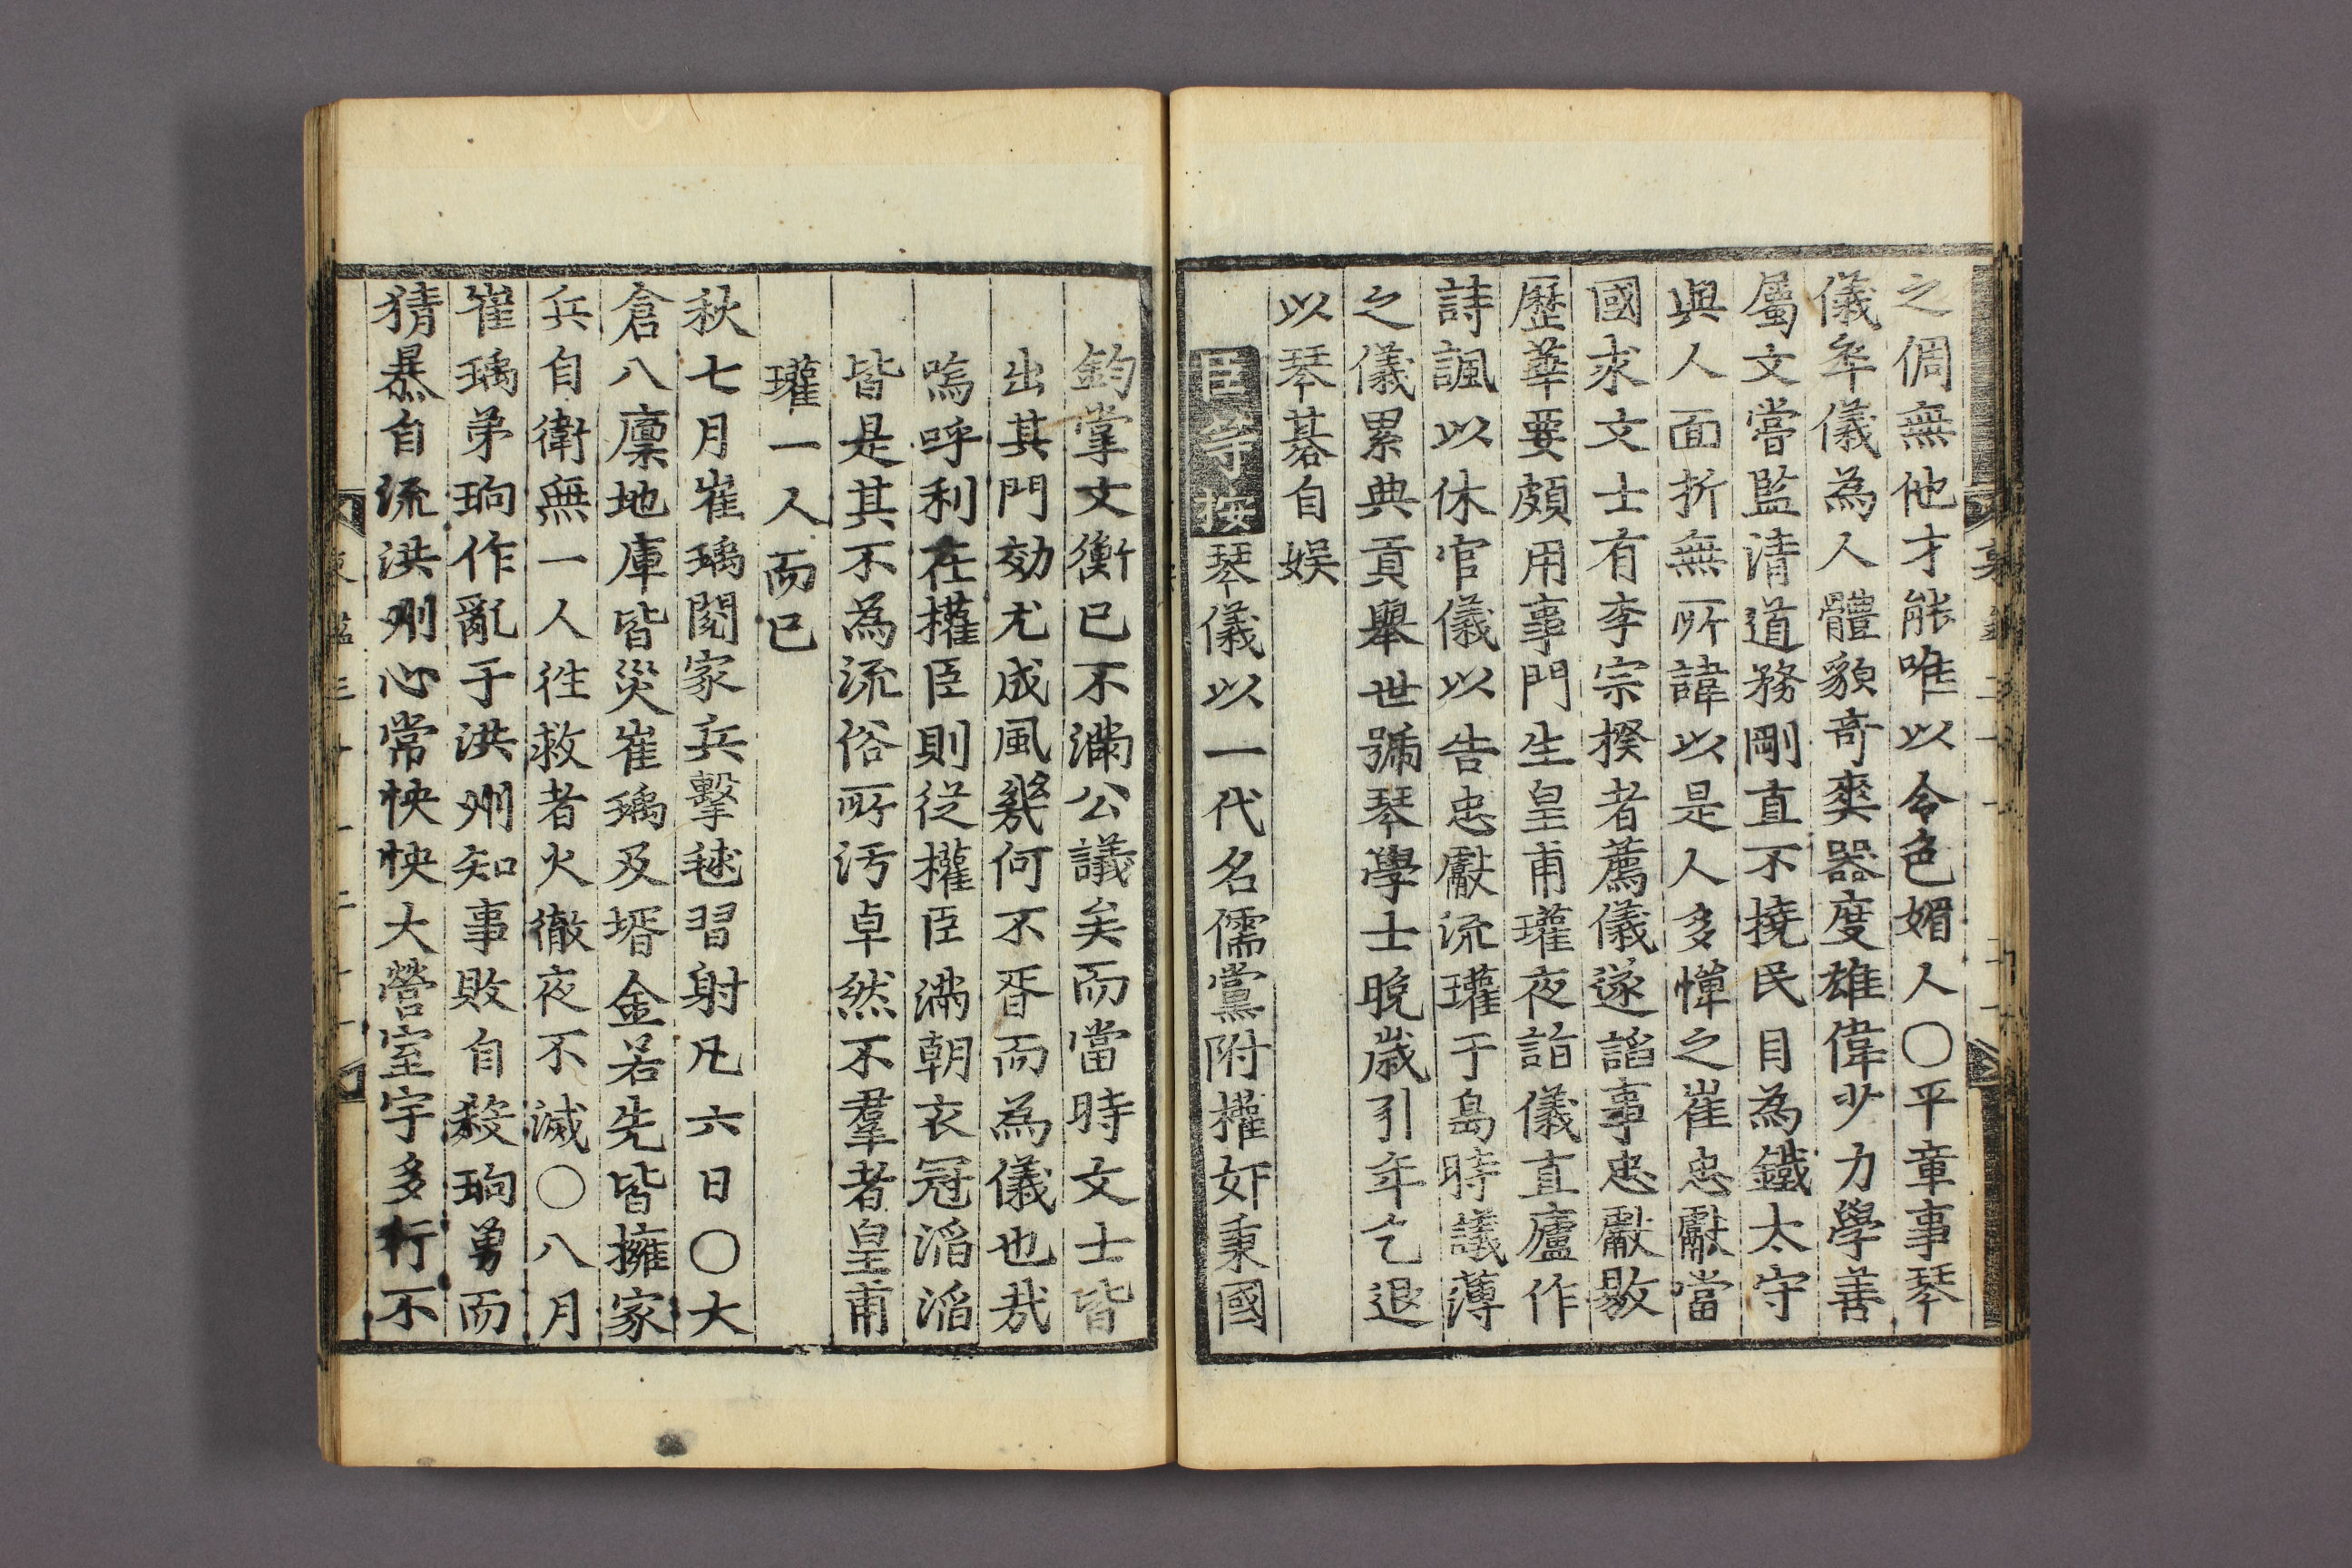 之倜無他才能唯以令色媚人○平章事琴
儀卒儀為人體貌奇爽器度雄偉少力學善
屬文嘗監清道務剛直不撓民目為鐵太守
與人面折無所諱以是人多憚之崔忠獻當
國求文士有李宗揆者薦儀遂諂事忠獻敭
歷華要頗用事門生皇甫瓘夜詣儀直廬作
詩諷以休官儀以告忠獻流瓘于島時議薄
之儀累典貢擧世號琴學士晩歲引年乞退
以琴碁自娛
臣等按琴儀以一代名儒黨附權奸秉國
鈞掌文衡已不滿公議矣而當時文士皆
出其門效尤成風幾何不胥而為儀也哉
嗚呼利在權臣則從權臣滿朝衣冠滔滔
皆是其不為流俗所汚卓然不羣者皇甫
瓘一人而已
秋七月崔瑀閱家兵擊毬習射凡六日○大
倉八廩地庫皆災崔瑀及壻金若先皆擁家
兵自衛無一人徃救者火徹夜不滅○八月
崔瑀弟珦作亂于洪州知事敗自殺珦勇而
猜暴自流洪州心常怏怏大營室宇多行不